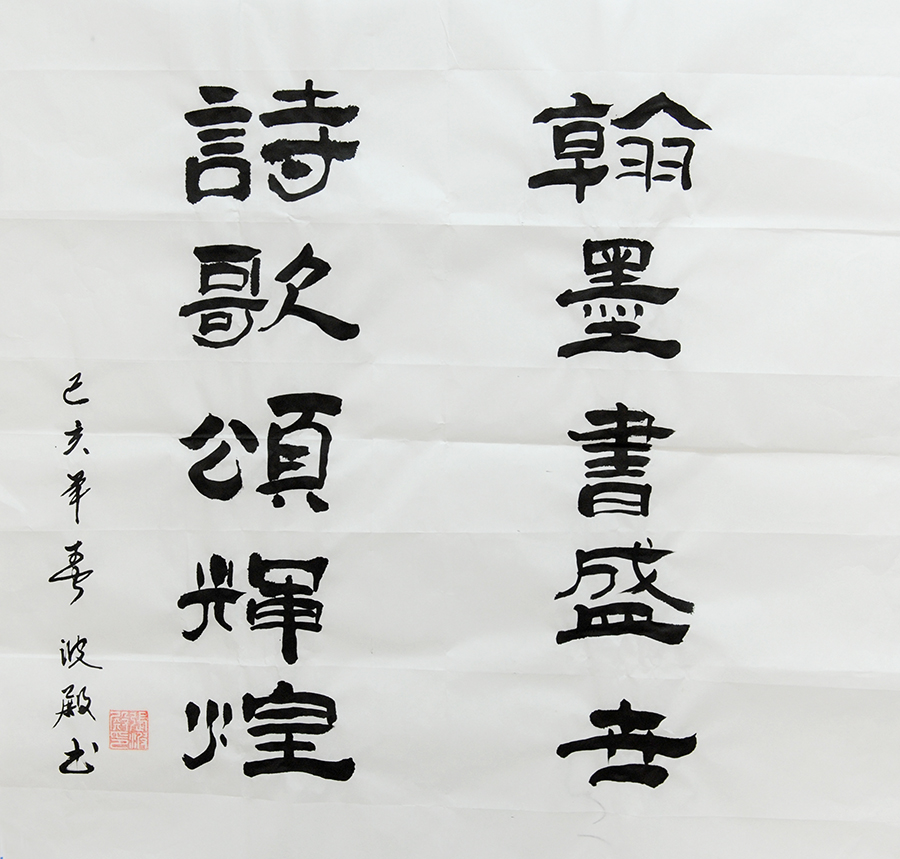 翰墨書盛世
詩歌頌輝煌
己亥年春波殿书